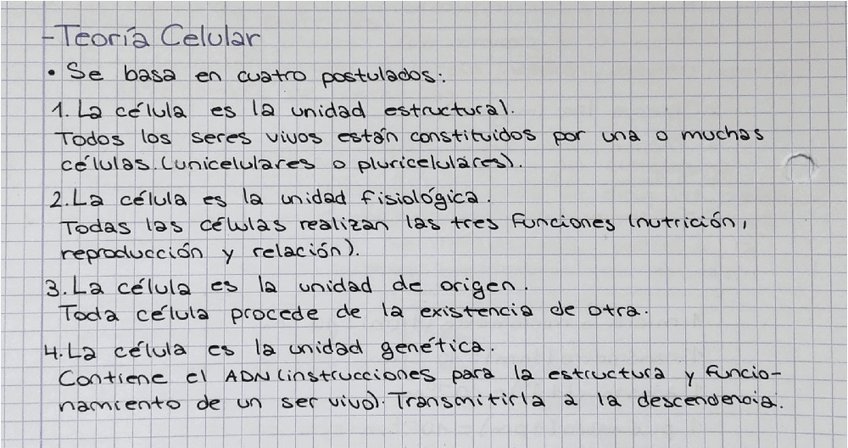 -Teoría Celular
• Se basa en cuatro postulados:
1. La célula es la unidad estructural.
Todos los seres vivos están constituidos por una o muchas
células. (unicelulares o pluricelulares).
2. La célula es la unidad fisiológica.
Todas las células realizan las tres funciones (nutrición,
reproducción y relación).
3. La célula es la unidad de origen.
Toda célula procede de la existencia de otra.
4. La célula es la unidad genética.
Contiene el ADN (instrucciones para la estructura y funcio-
namiento de un ser vivo). Transmitirla a la descendencia.